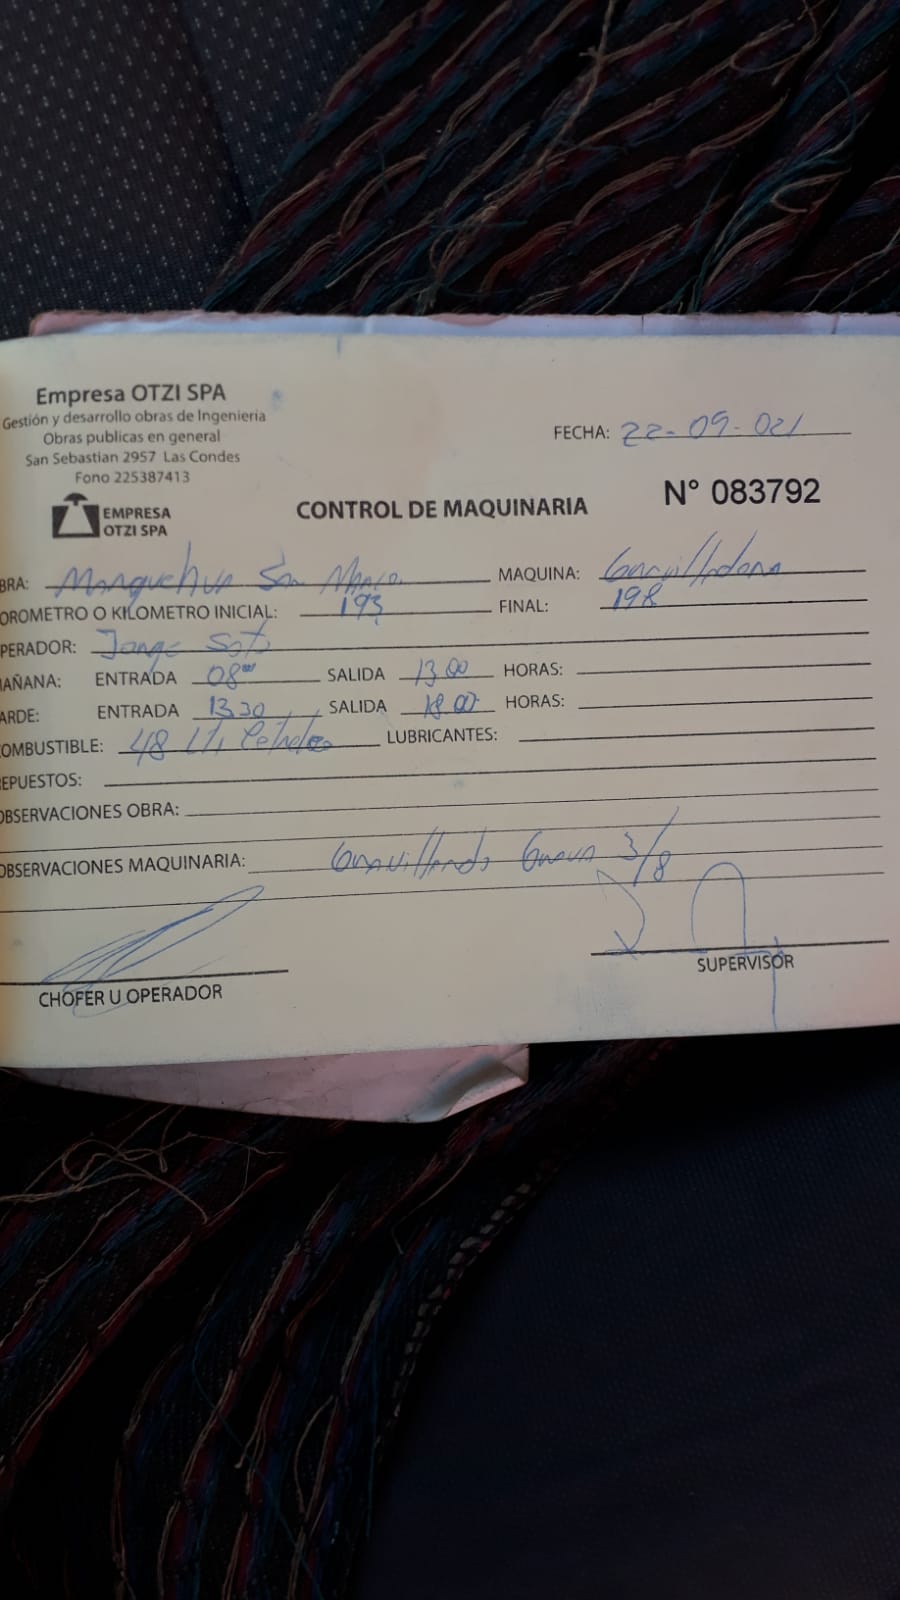 Empresa OTZI SPA
Gestión y desarrollo obras de Ingenieria
Obras publicas en general
San Sebastian 2957 Las Condes
Fono 225387413
FECHA: 22-09-021
EMPRESA
OTZI SPA
CONTROL DE MAQUINARIA
N° 083792
BRA: Manquehua San MAQUINA: Gravilladora
OROMETRO O KILOMETRO INICIAL: 193 FINAL: 198
PERADOR: Jorge Soto
MAÑANA: ENTRADA 08⁰⁰ SALIDA 13.00 HORAS:
ARDE: ENTRADA 13.30 SALIDA 18.00 HORAS:
OMBUSTIBLE: 48 Lts Petroleo LUBRICANTES:
EPUESTOS:
OBSERVACIONES OBRA:
OBSERVACIONES MAQUINARIA: Gravillando Grava 3/8
CHOFER U OPERADOR
SUPERVISOR